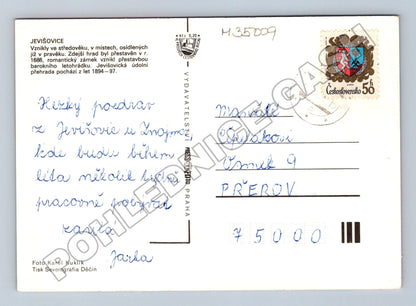 JEVIŠOVICE
Vznikly ve středověku, v místech, osídlených
již v pravěku. Zdejší hrad byl přestavěn v r.
1686, romantický zámek vznikl přestavbou
barokního letohrádku. Jevišovická údolní
přehrada pochází z let 1894-97.
Hezký pozdrav
z Jevišovic u Znojma
kde budu během
léta několik
pracovně
zasílá
Jarka
Foto Kamil Kuklík
Tisk Severografia Děčín
VYDAVATELSTVÍ PRAHA
M35009
Československo 50 h
Manželé
Osmek 9
PŘEROV
75000
POHLEDNICE GASH